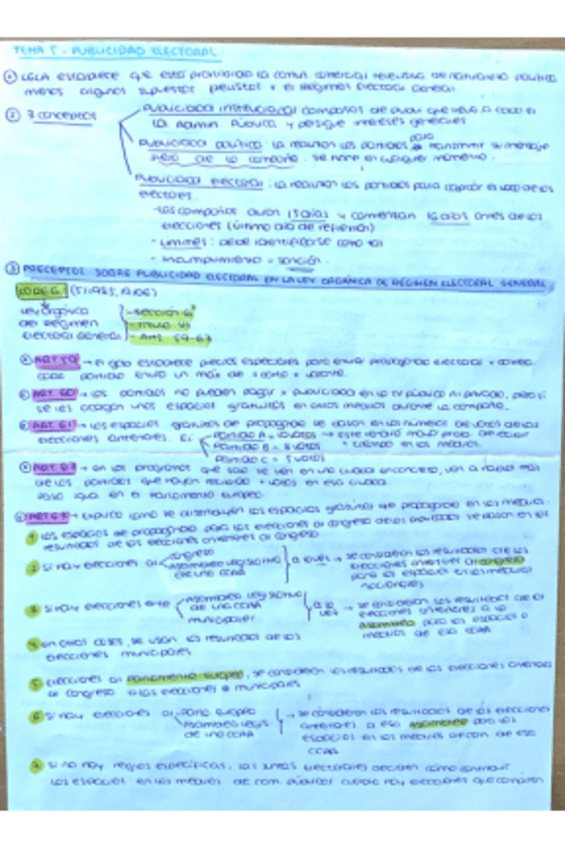 TEMA 5 - PUBLICIDAD ELECTORAL
① LGCA establece que está prohibida la comun. comercial televisiva de naturaleza política
menos algunos supuestos previstos x el Régimen Electoral General.
② 3 conceptos
Publicidad institucional: campañas de publi que lleva a cabo
la Admin. Pública y persigue intereses generales
Publicidad política: la realizan los partidos para transmitir su mensaje
fuera de la campaña. Se hace en cualquier momento.
Publicidad electoral: la realizan los partidos para captar el voto de los
electores.
- Las campañas duran 15 días y comienzan antes de las
elecciones (último día de reflexión)
- Límites: debe identificarse como tal
- Incumplimiento = sanción
③ PRECEPTOS SOBRE PUBLICIDAD ELECTORAL EN LA LEY ORGÁNICA DE RÉGIMEN ELECTORAL GENERAL
LOREG (5/1985, 19/06)
Ley Orgánica - Sección 6ª
del Régimen - Título VI
Electoral General - Arts. 59-67
ART 59 → establece precios especiales para enviar propaganda electoral x correo.
cada partido envío un max de 1 correo x votante.
ART 60 → los partidos no pueden pagar x publicidad en la TV pública ni privada, pero sí
se les otorgan unos espacios gratuitos en estos medios durante la campaña.
ART 61 → los espacios gratuitos de propaganda se basan en los números de votos de las
elecciones anteriores. Ej: Partido A = votos → este tendrá
Partido B = 8 votos + tiempo en los medios.
Partido C = 5 votos
→ en los programas que solo se ven en una ciudad en concreto, van a hablar más
de los partidos que hayan recibido + votos en esa ciudad.
Pasa igual en el Parlamento Europeo.
→ explica como se distribuyen los espacios gratuitos de propaganda en los medios.
① Los espacios de propaganda para las elecciones al congreso de los diputados se basan en los
resultados de las elecciones anteriores al congreso.
② Si hay elecciones al congreso
Asamblea legislativa
de una CCAA
a la vez → se consideran los resultados de las
elecciones anteriores al congreso
para los espacios en los medios
nacionales
③ Si hay elecciones Asamblea legislativa
de una CCAA
municipales
a la vez → se consideran los resultados de las
elecciones anteriores a la
asamblea para los espacios
medios de esa CCAA
④ En otros casos, se usan los resultados de las
elecciones municipales
⑤ Elecciones al parlamento europeo, se consideran los resultados de las elecciones anteriores
al congreso o a las elecciones municipales
⑥ Si hay elecciones al parla. europeo
Asamblea legis.
de una CCAA
→ se consideran los resultados de las elecciones
anteriores a esa asamblea para los
espacios en los medios de com. de esa
CCAA.
⑦ Si no hay reglas específicas, las juntas electorales deciden cómo
los espacios en los medios de com. públicos cuando hay elecciones que